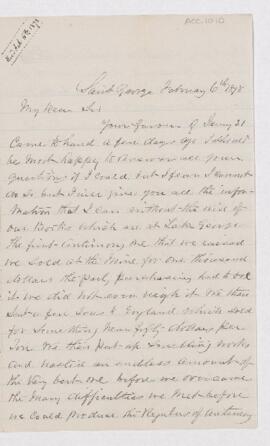 ACC.1010
Saint George February 6th 1878
My Dear Sir
Your Favour of Jany 31
Came to hand a few days ago I should
be most happy to answer all your
questions if I could, but I fear I cannot
do so. but I will give you all the infor-
mation that I can without the aid of
our Books which are at Lake George
The first Antimony Ore that we raised
we sold at the Mine for one thousand
dollars the parties purchasing had to
it we did not even weigh it We then
sent a few Tons to England which sold
for something near fifty dollars per
Ton. We then Put up Smelting works
and wasted an endless amount of
the very best ore before we overcame
the many difficulties we met before
we could Produce the Regulus of Antimony